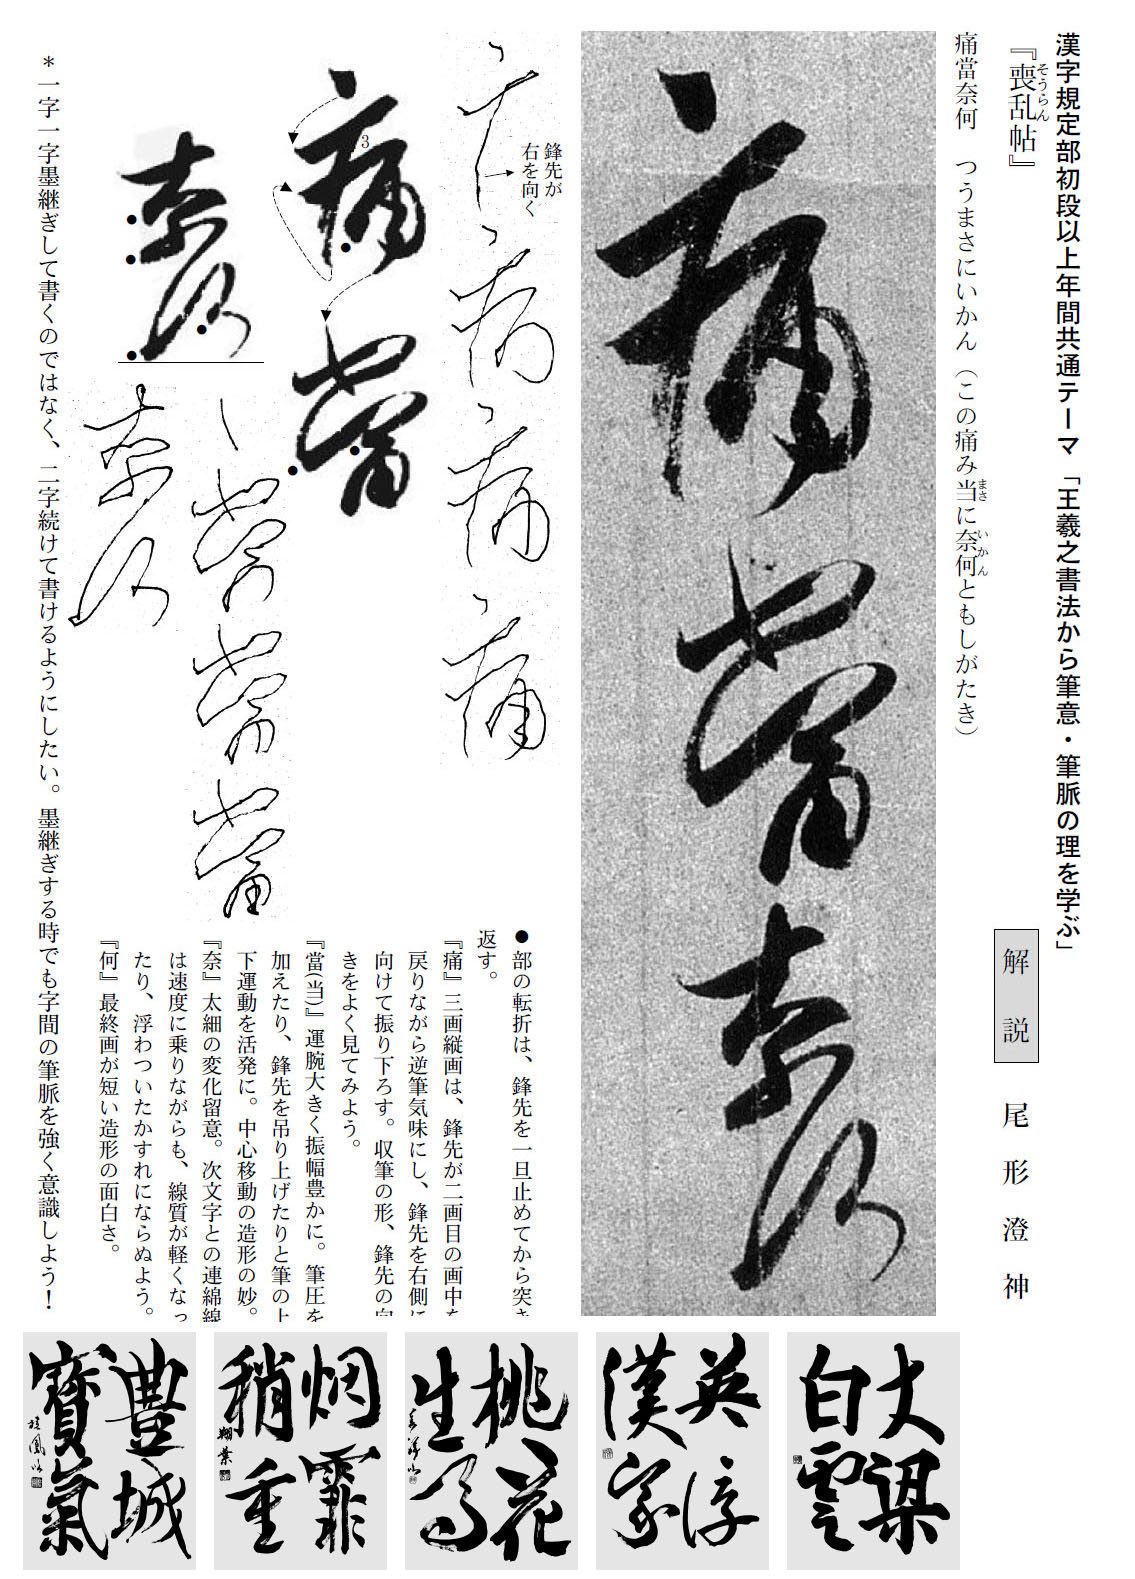 漢字規定部初段以上年間共通テーマ「王羲之書法から筆意・筆脈の理を学ぶ」
『喪乱帖』
そうらん
解説
尾形澄神
痛當奈何　つうまさにいかん（この痛み当に奈何ともしがたき）
まさ
いかん
痛當奈何
鋒先が
右を向く
痛
3
當
奈何
●部の転折は、鋒先を一旦止めてから突き
返す。
『痛』三画縦画は、鋒先が二画目の画中を
戻りながら逆筆気味にし、鋒先を右側に
向けて振り下ろす。収筆の形、鋒先の向
きをよく見てみよう。
『當(当)』運腕大きく振幅豊かに。筆圧を
加えたり、鋒先を吊り上げたりと筆の上
下運動を活発に。中心移動の造形の妙。
『奈』太細の変化留意。次文字との連綿線
は速度に乗りながらも、線質が軽くなっ
たり、浮わついたかすれにならぬよう。
『何』最終画が短い造形の面白さ。
＊一字一字墨継ぎして書くのではなく、二字続けて書けるようにしたい。墨継ぎする時でも字間の筆脈を強く意識しよう！
丈梁
白雲
英淳
漢家
桃花
生
烟霏
稍重
豊城
寶氣